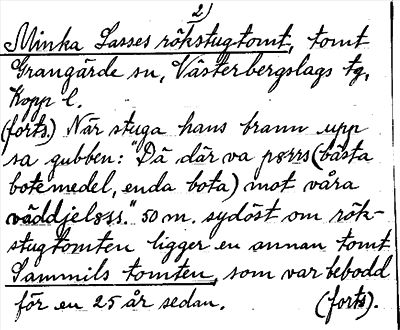 2)
Minka Lasses rökstugtomt, tomt
Grangärde sn, Västerbergslags tg,
Kopp l.
(forts.) När stuga hans brann upp
sa gubben: "Dä där va pærrs (bästa
botemedel, enda bota) mot våra
väddjelæss." 50 m. sydöst om rök-
stugtomten ligger en annan tomt
Sammils tomten, som var bebodd
för en 25 år sedan. (forts).